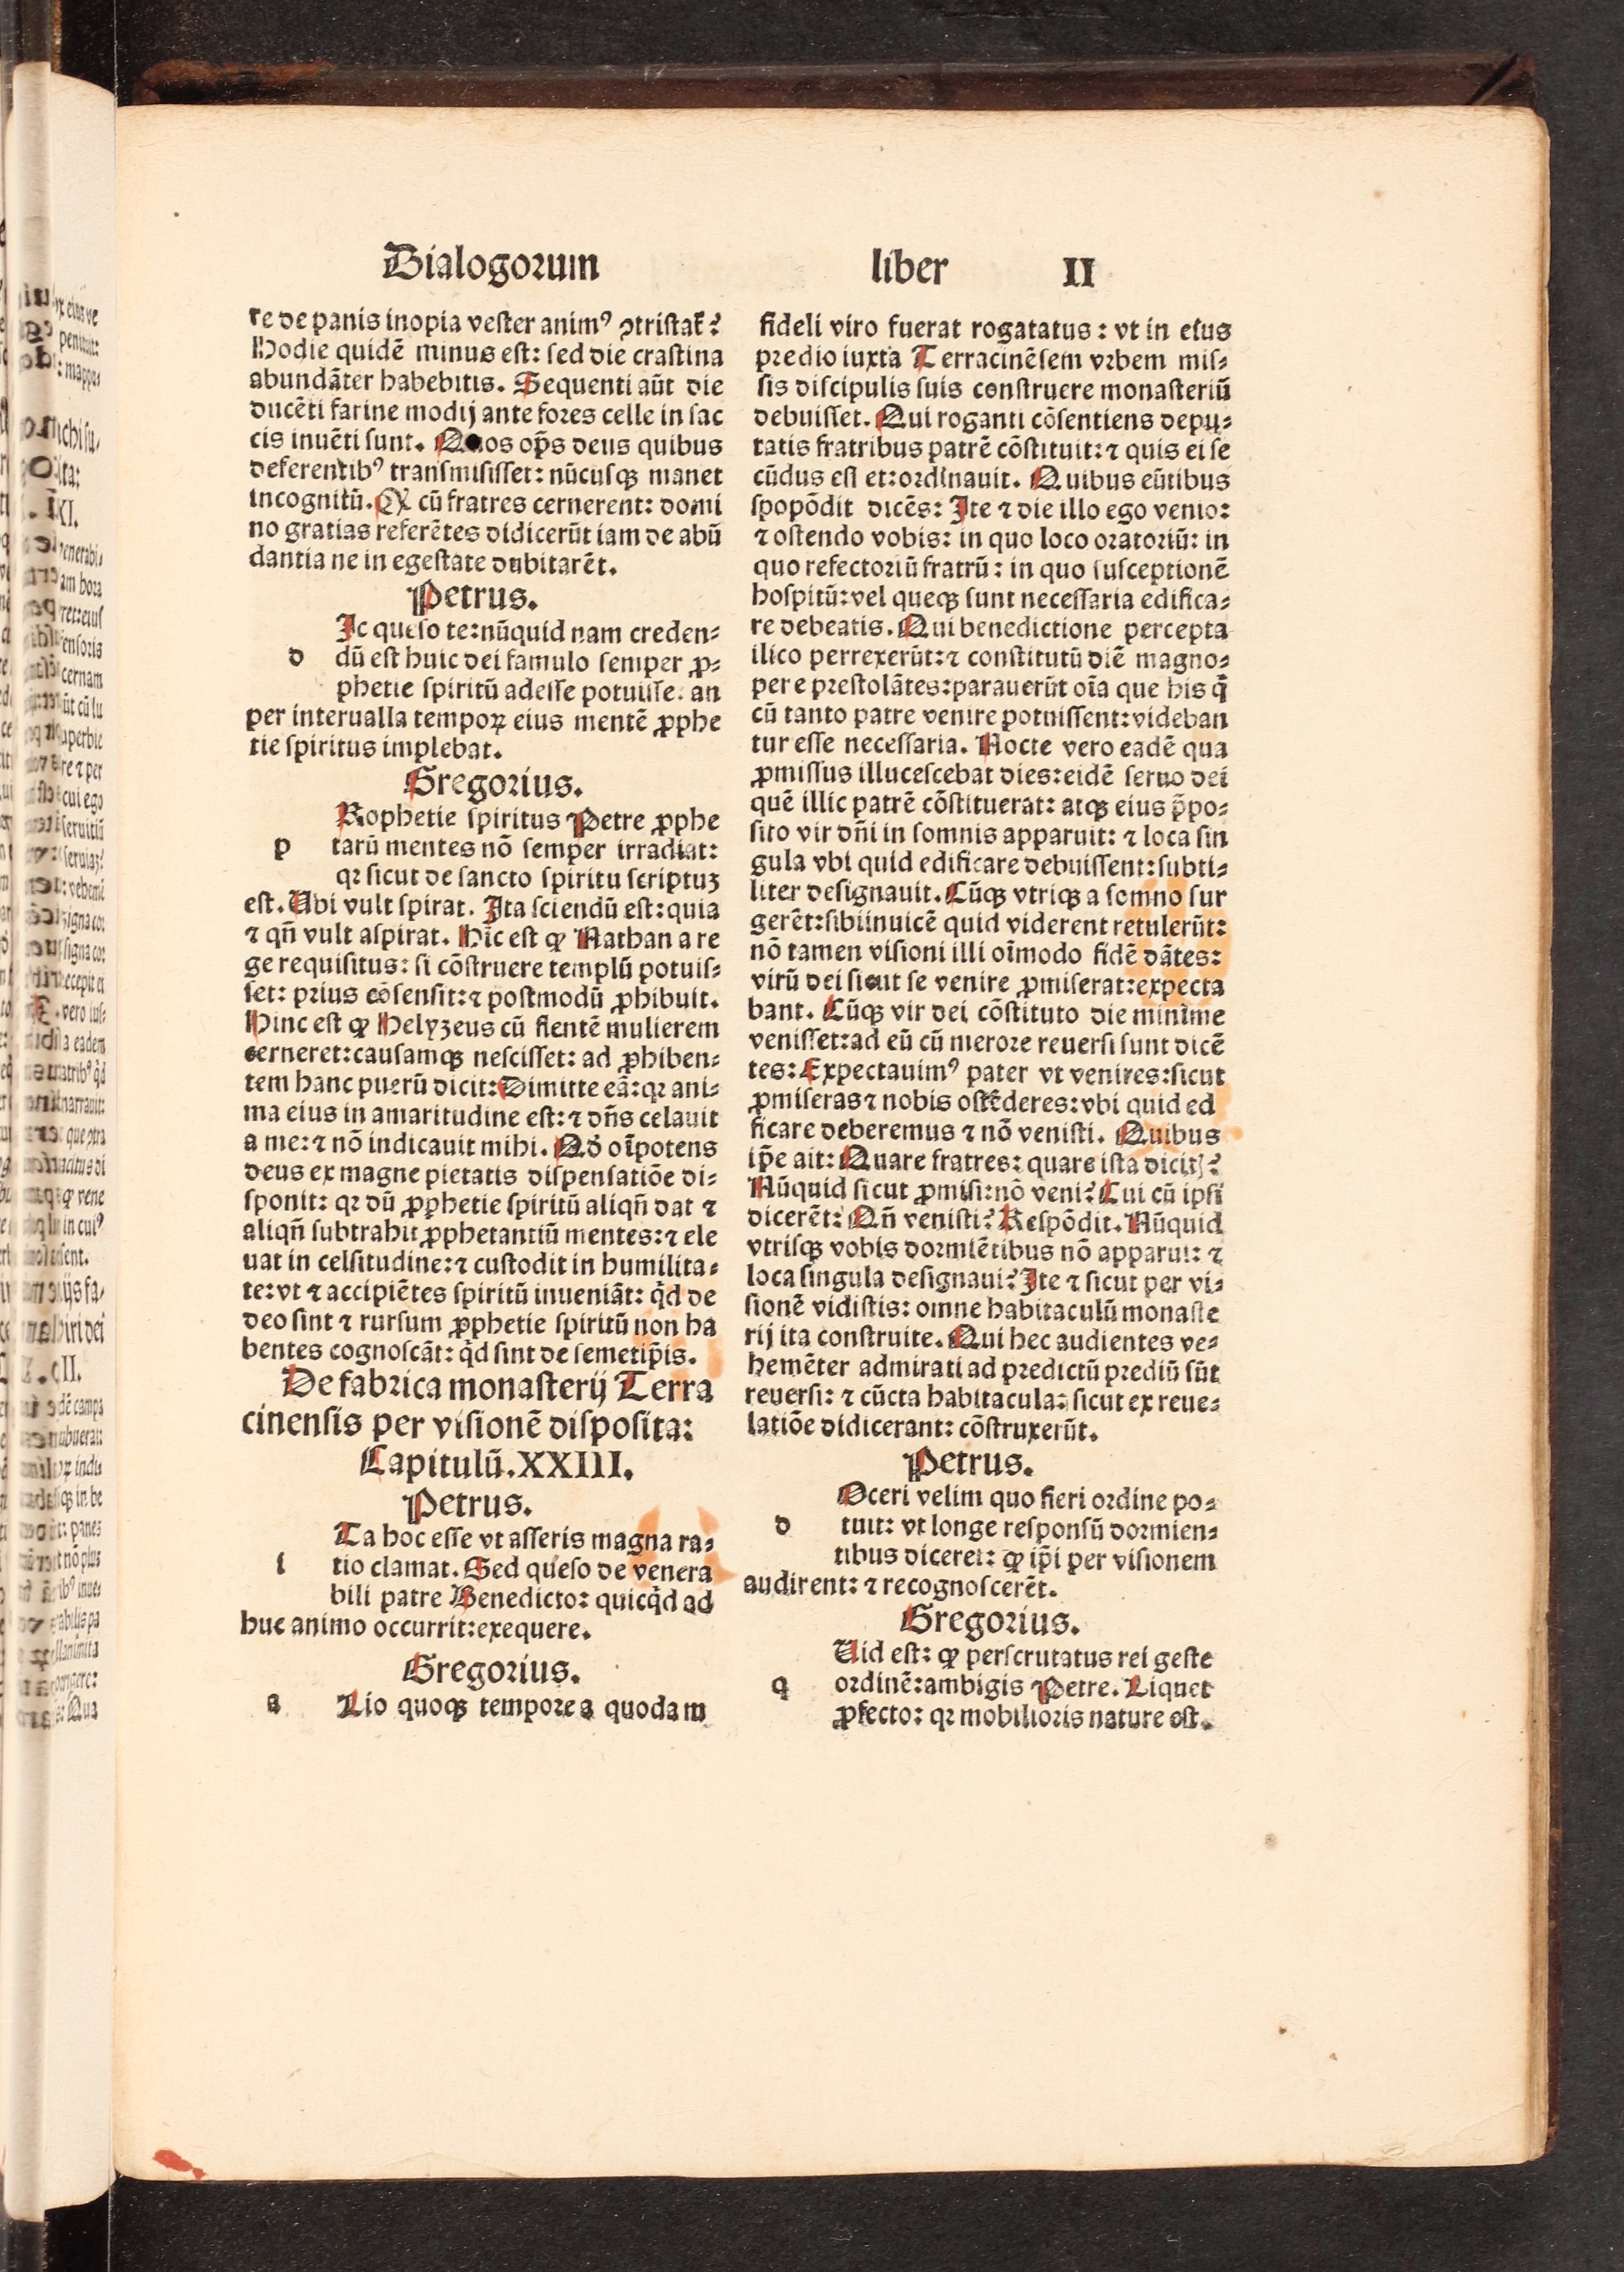 Dialogorum liber II
re de panis inopia vester animꝰ ꝯtristat̃?
Hodie quidẽ minus est: sed die crastina
abundãter habebitis. Sequenti aũt die
ducẽti farine modij ante fores celle in sac
cis inuẽti sunt. Quos op̃s deus quibus
deferentibꝰ transmisisset: nũcusqꝫ manet
incognitũ. Qḋ cũ fratres cernerent: domi
no gratias referẽtes didicerũt iam de abũ
dantia ne in egestate dubitarẽt.
Petrus.
Ic queso te: nũquid nam creden⸗
d dũ est huic dei famulo semper ꝓ⸗
phetie spiritũ adesse potuisse. an
per interualla tempoꝝ eius mentẽ ꝓphe
tie spiritus implebat.
Gregorius.
Rophetie spiritus Petre ꝓphe
p tarũ mentes nõ semper irradiat:
qꝛ sicut de sancto spiritu scriptuꝫ
est. Ubi vult spirat. Ita sciendũ est: quia
⁊ qñ vult aspirat. Hĩc est ꝙ Nathan a re
ge requisitus: si cõstruere templũ potuis⸗
set: prius cõsensit: ⁊ postmodũ ꝓhibuit.
Hinc est ꝙ Helyzeus cũ flentẽ mulierem
cerneret: causamqꝫ nescisset: ad ꝓhiben⸗
tem hanc puerũ dicit: Dimitte eã: qꝛ ani⸗
ma eius in amaritudine est: ⁊ dñs celauit
a me: ⁊ nõ indicauit mihi. Qḋ oĩpotens
deus ex magne pietatis dispensatiõe di⸗
sponit: qꝛ dũ ꝓphetie spiritũ aliqñ dat ⁊
aliqñ subtrahit ꝓphetantiũ mentes: ⁊ ele
uat in celsitudine: ⁊ custodit in humilita⸗
te: vt ⁊ accipiẽtes spiritũ inueniãt: q̇d de
deo sint ⁊ rursum ꝓphetie spiritũ non ha
bentes cognoscãt: q̇d sint de semetip̃is.
De fabrica monasterij Terra
cinensis per visionẽ disposita:
Capitulũ. XXIII.
Petrus.
Ta hoc esse vt asseris magna ra⸗
i tio clamat. Sed queso de venera
bili patre Benedicto: quicq̇d ad
huc animo occurrit: exequere.
Gregorius.
a Lio quoqꝫ tempore a quodam
fideli viro fuerat rogatatus: vt in eius
predio iuxta Terracinẽsem vrbem mis⸗
sis discipulis suis construere monasteriũ
debuisset. Qui roganti cõsentiens depu⸗
tatis fratribus patrẽ cõstituit: ⁊ quis ei se
cũdus est et: ordinauit. Quibus eũtibus
spopõdit dicẽs: Ite ⁊ die illo ego venio:
⁊ ostendo vobis: in quo loco oratoriũ: in
quo refectoriũ fratrũ: in quo susceptionẽ
hospitũ: vel queqꝫ sunt necessaria edifica⸗
re debeatis. Qui benedictione percepta
ilico perrexerũt: ⁊ constitutũ diẽ magno⸗
pere prestolãtes: parauerũt oĩa que his q̃
cũ tanto patre venire potuissent: videban
tur esse necessaria. Nocte vero eadẽ qua
ꝓmissus illucescebat dies: eidẽ seruo dei
quẽ illic patrẽ cõstituerat: atqꝫ eius p̃po⸗
sito vir dñi in somnis apparuit: ⁊ loca sin
gula vbi quid edificare debuissent: subti⸗
liter designauit. Cũqꝫ vtriqꝫ a somno sur
gerẽt: sibiinuicẽ quid viderent retulerũt:
nõ tamen visioni illi oĩmodo fidẽ dãtes:
virũ dei sicut se venire ꝓmiserat: expecta
bant. Cũqꝫ vir dei cõstituto die minime
venisset: ad eũ cũ merore reuersi sunt dicẽ
tes: Expectauimꝰ pater vt venires: sicut
ꝓmiseras ⁊ nobis ostẽderes: vbi quid ed
ficare deberemus ⁊ nõ venisti. Quibus
ip̃e ait: Quare fratres: quare ista dicitꝭ?
Nũquid sicut ꝓmisi: nõ veni? Cui cũ ipsi
dicerẽt: Qñ venisti? Respõdit. Nũquid
vtrisqꝫ vobis dormiẽtibus nõ apparui: ⁊
loca singula designaui? Ite ⁊ sicut per vi⸗
sionẽ vidistis: omne habitaculũ monaste
rij ita construite. Qui hec audientes ve⸗
hemẽter admirati ad predictũ prediũ sũt
reuersi: ⁊ cũcta habitacula: sicut ex reue⸗
latiõe didicerant: cõstruxerũt.
Petrus.
Oceri velim quo fieri ordine po⸗
d tuit: vt longe responsũ dormien⸗
tibus diceret: ꝙ ip̃i per visionem
audirent: ⁊ recognoscerẽt.
Gregorius.
Uid est: ꝙ perscrutatus rei geste
q ordinẽ: ambigis Petre. Liquet
ꝓfecto: qꝛ mobilioris nature est.